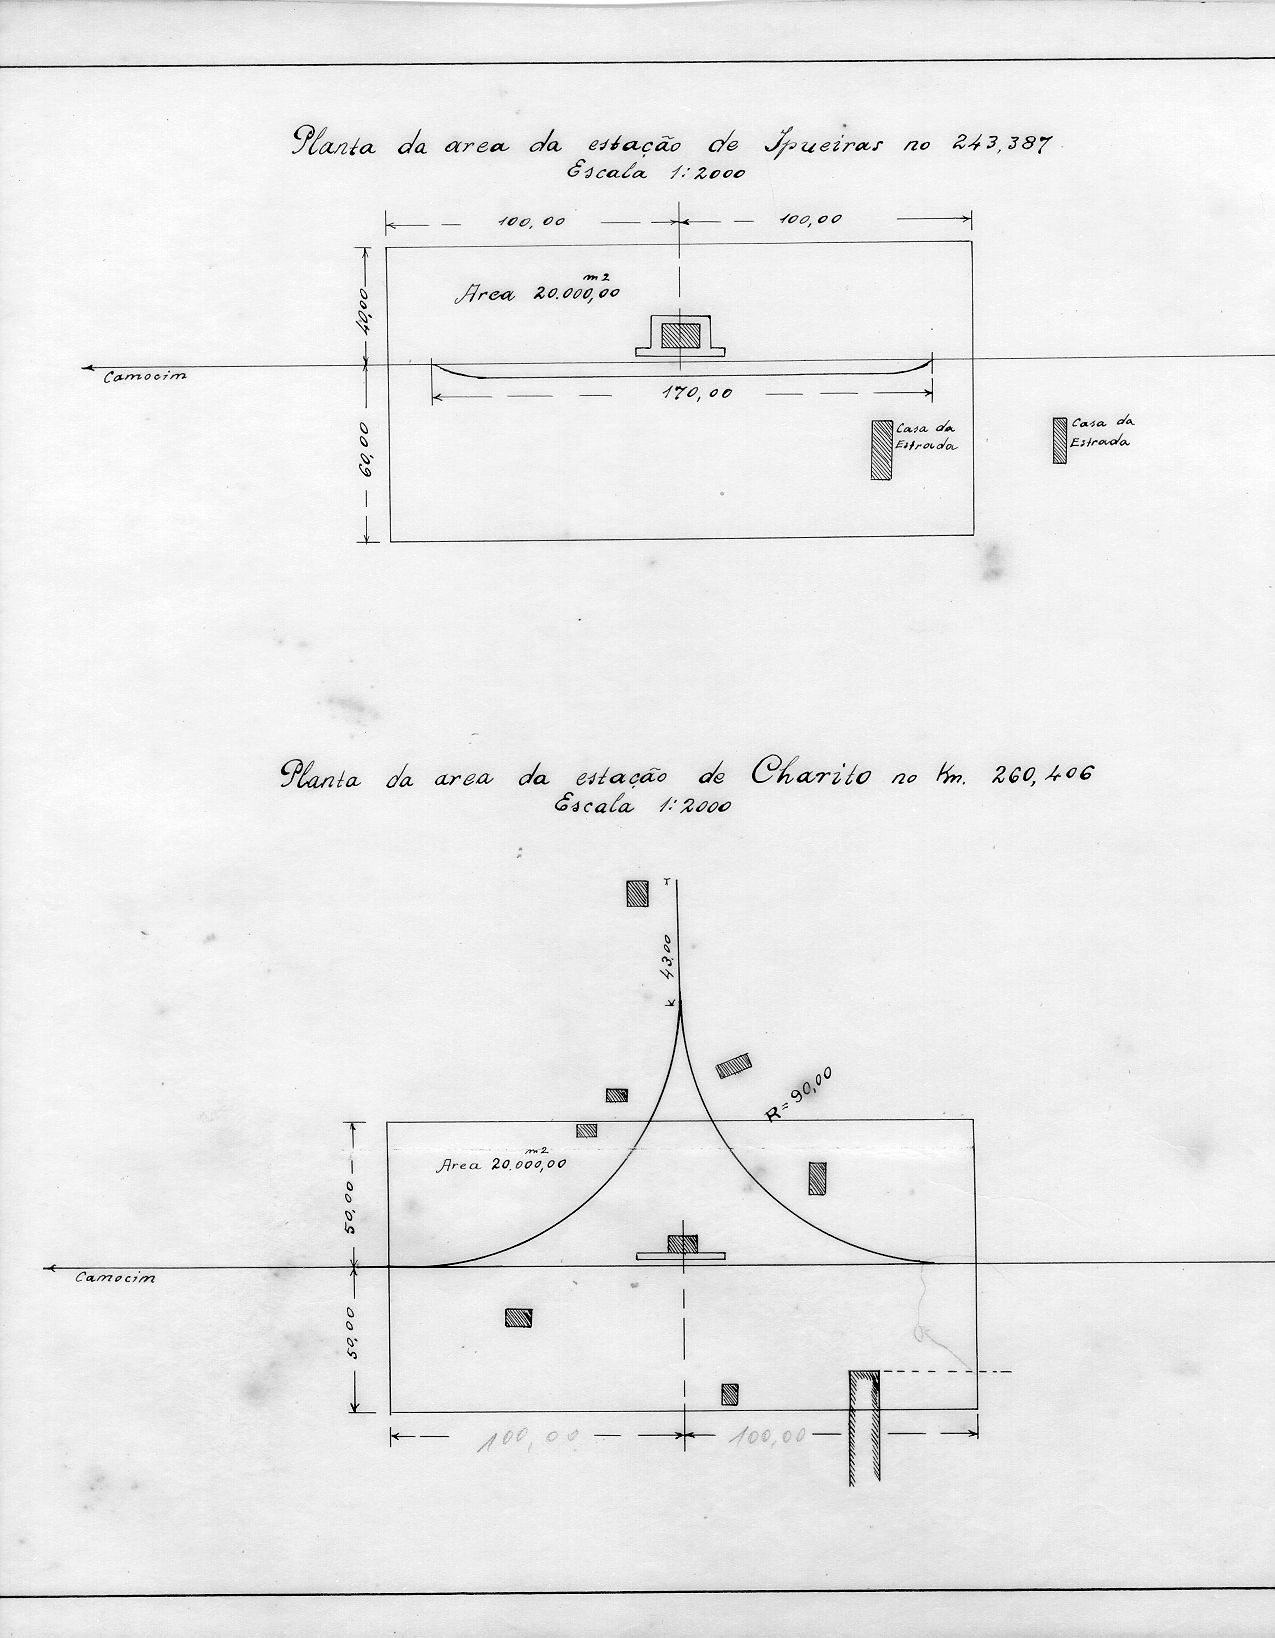 Planta da area da estação de Ipueiras no 243,387
Escala 1:2000
100,00 100,00
Area 20.000,00 m2
40,00
Camocim
170,00
60,00
Casa da
Estrada
Casa da
Estrada
Planta da area da estação de Charito no Km. 260,406
Escala 1:2000
43,00
R=90,00
Area 20.000,00 m2
50,00
Camocim
50,00
100,00 100,00